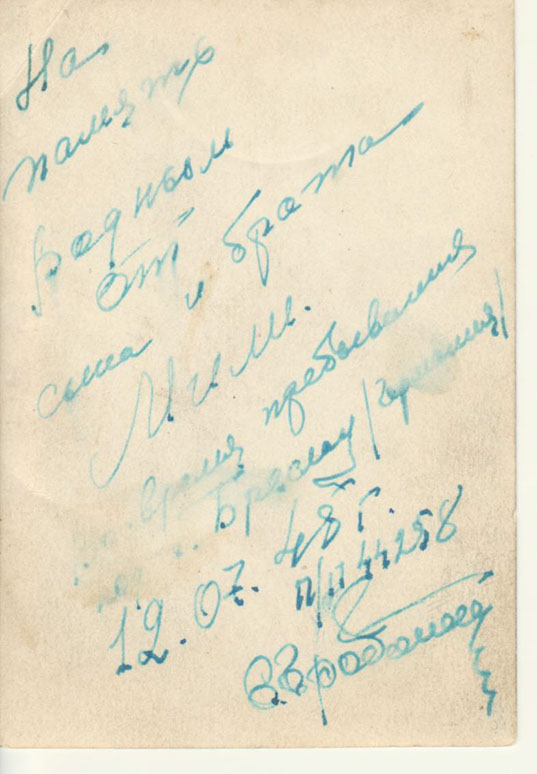 На
память
родным
от
сына и брата
М.И.М.
во время пребывания
г. Бреслау /Германия/
12.07.48 г.
п/п 44258